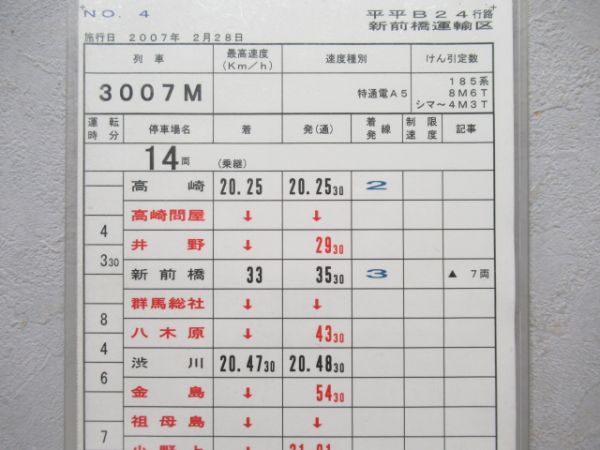 NO. 4
平平B24行路
新前橋運輸区
施行日 2007年 2月28日
列車 最高速度(Km/h) 速度種別 けん引定数
3007M 特通電A5 185系 8M6T シマ〜4M3T
運転時分 停車場名 着 発(通) 着発線 制限速度 記事
14両 (乗継)
高崎 20.25 20.25 30 2
高崎問屋 ↓ ↓
4 井野 ↓ 29 30
3 30 新前橋 33 35 30 3 ▲ 7両
群馬総社 ↓ ↓
8 八木原 ↓ 43 30
4 渋川 20.47 30 20.48 30
6 金島 ↓ 54 30
祖母島 ↓ ↓
7 小野上 ↓